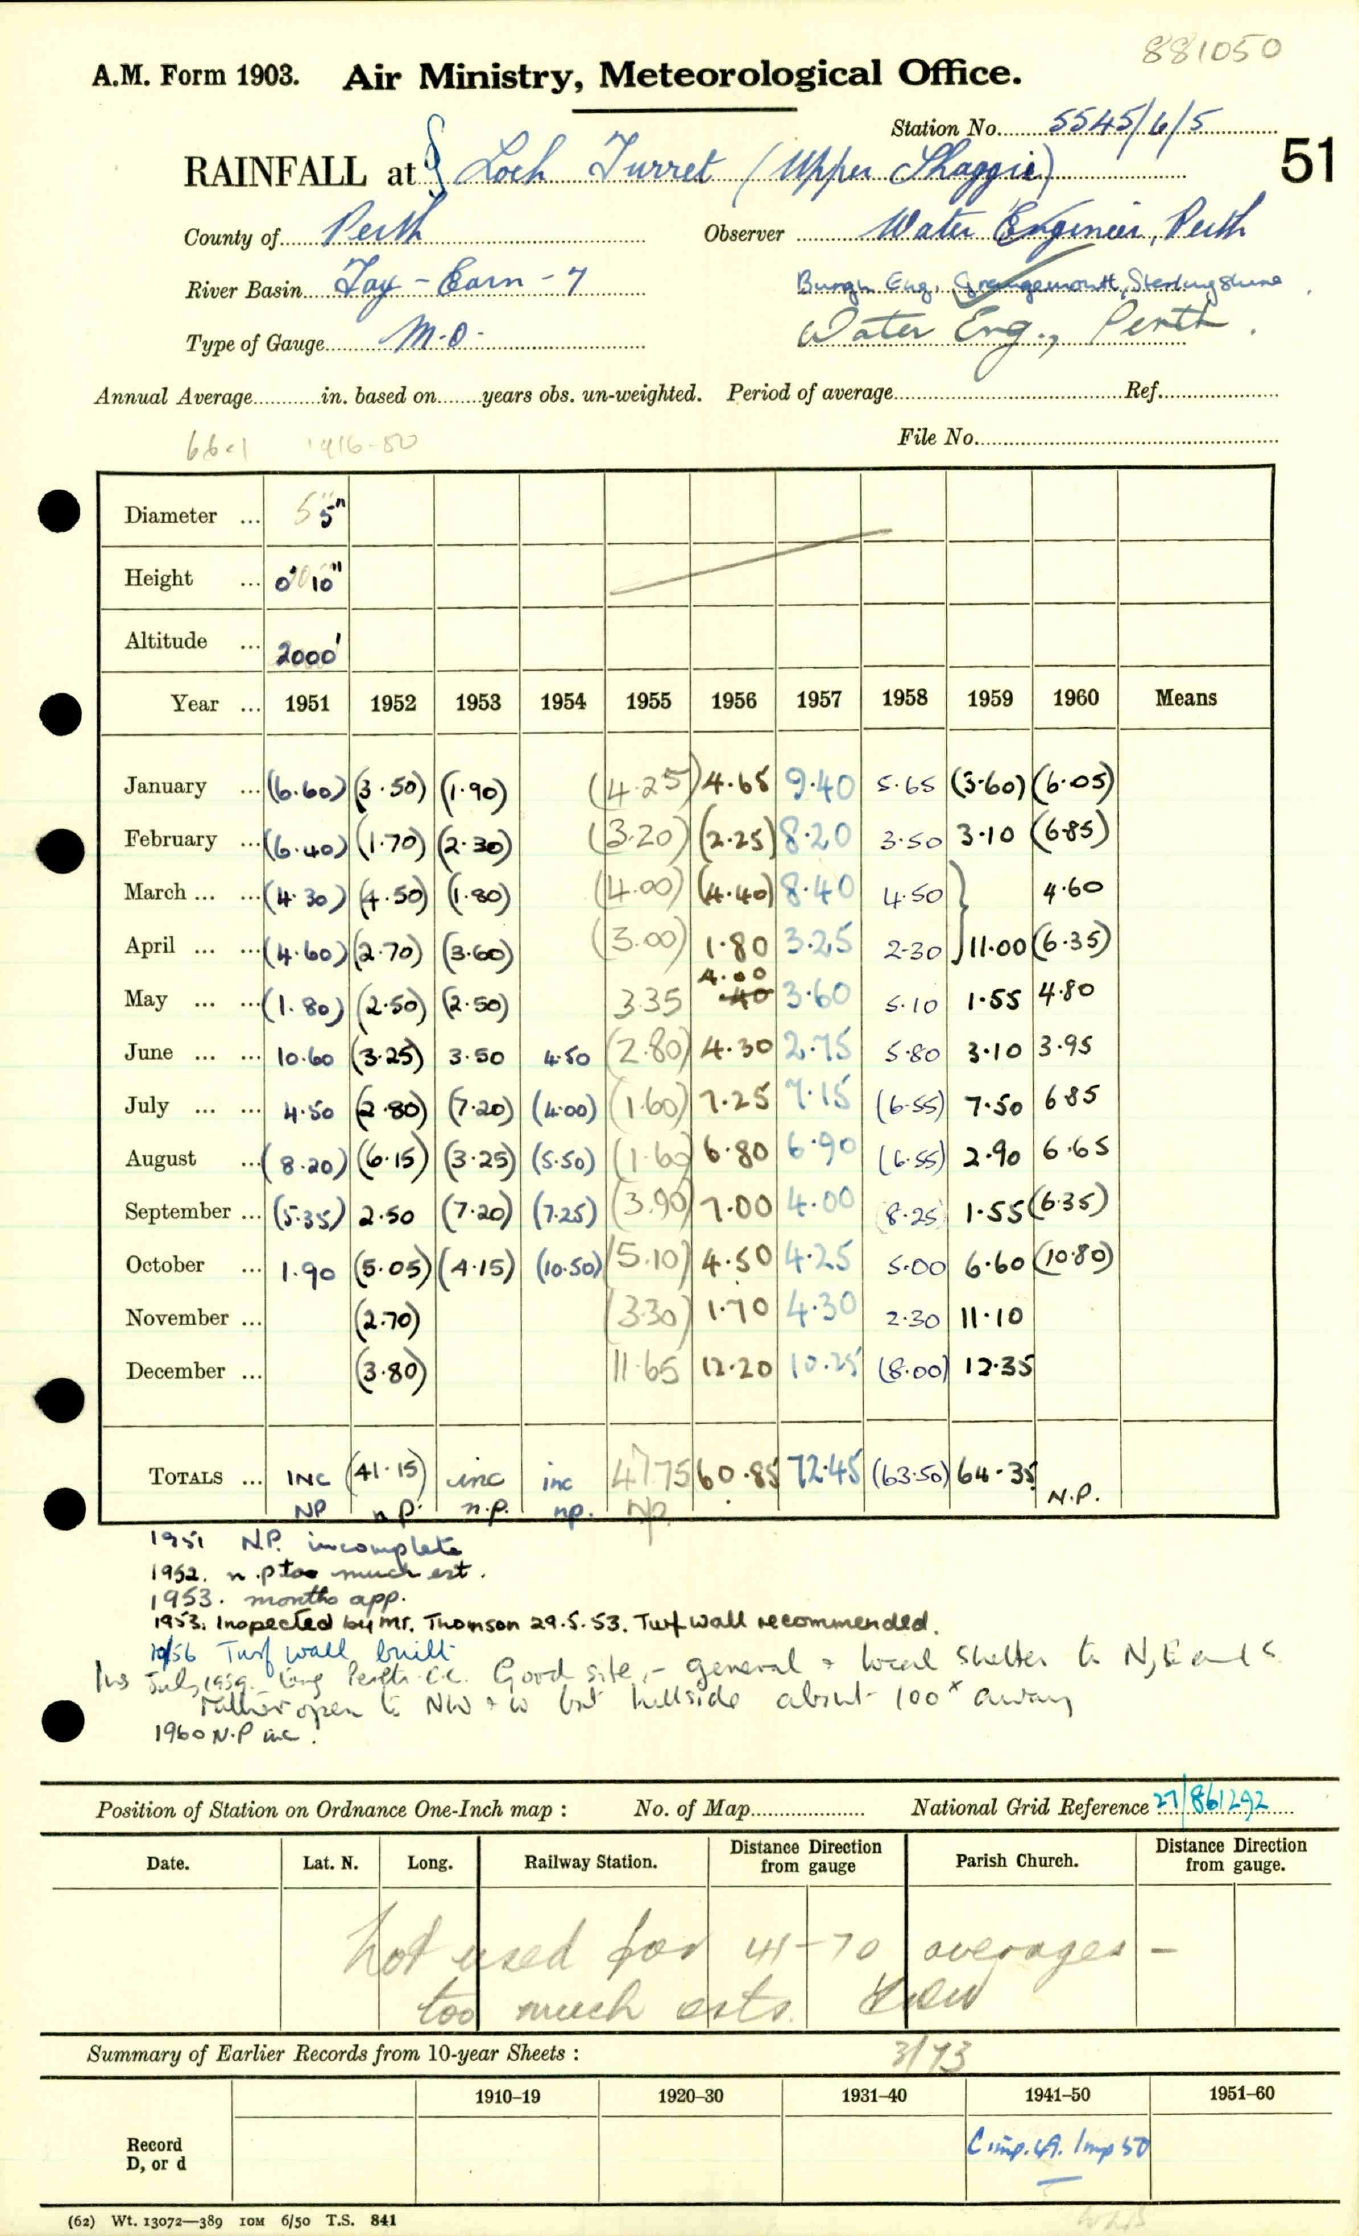 881050
A.M. Form 1903. Air Ministry, Meteorological Office.
Station No. 5545/6/5
RAINFALL at Loch Turret (Upper Shaggie) 51
County of Perth Observer Water Engineer, Perth
River Basin Tay - Earn - 7 Burgh Eng. Grangemouth, Stirlingshire
Type of Gauge M.O. Water Eng., Perth.
Annual Average in. based on years obs. un-weighted. Period of average Ref.
66.1 1916-50 File No.
Diameter ... 5" 5"
Height ... 0' 10"
Altitude ... 2000'
Year ... 1951 1952 1953 1954 1955 1956 1957 1958 1959 1960 Means
January ... (6.60) (3.50) (1.90) (4.25) 4.65 9.40 5.65 (3.60) (6.05)
February ... (6.40) (1.70) (2.30) (3.20) (2.25) 8.20 3.50 3.10 (6.85)
March ... ... (4.30) (4.50) (1.80) (4.00) (4.40) 8.40 4.50 } 4.60
April ... ... (4.60) (2.70) (3.60) (3.00) 1.80 3.25 2.30 11.00 (6.35)
4.00
May ... ... (1.80) (2.50) (2.50) 3.35 40 3.60 5.10 1.55 4.80
June ... ... 10.60 (3.25) 3.50 4.50 (2.80) 4.30 2.75 5.80 3.10 3.95
July ... ... 4.50 (2.80) (7.20) (4.00) (1.60) 7.25 7.15 (6.55) 7.50 6.85
August ... (8.20) (6.15) (3.25) (5.50) (1.60) 6.80 6.90 (6.55) 2.90 6.65
September ... (5.35) 2.50 (7.20) (7.25) (3.90) 7.00 4.00 (8.25) 1.55 (6.35)
October ... 1.90 (5.05) (4.15) (10.50) (5.10) 4.50 4.25 5.00 6.60 (10.80)
November ... (2.70) (3.30) 1.70 4.30 2.30 11.10
December ... (3.80) 11.65 12.20 10.25 (8.00) 12.35
TOTALS ... INC (41.15) inc inc 47.75 60.85 72.45 (63.50) 64.35
NP n.p. n.p. np. np. N.P.
1951 N.P. incomplete
1952. n.p too much est.
1953. months app.
1953. Inspected by Mr. Thomson 29.5.53. Turf wall recommended.
10/56 Turf wall built
Ins July, 1959. Eng Perth C.C. Good site, - general + local shelter to N, E and S
rather open to NW + W but hillside about 100x away
1960 N.P inc.
Position of Station on Ordnance One-Inch map : No. of Map National Grid Reference 27/861292
Date. Lat. N. Long. Railway Station. Distance Direction from gauge Parish Church. Distance Direction from gauge.
Not used for 41-70 averages -
too much ests.
3/73
Summary of Earlier Records from 10-year Sheets :
1910–19 1920–30 1931–40 1941–50 1951–60
Record
D, or d
C imp. 49. Imp 50
(62) Wt. 13072—389 10M 6/50 T.S. 841